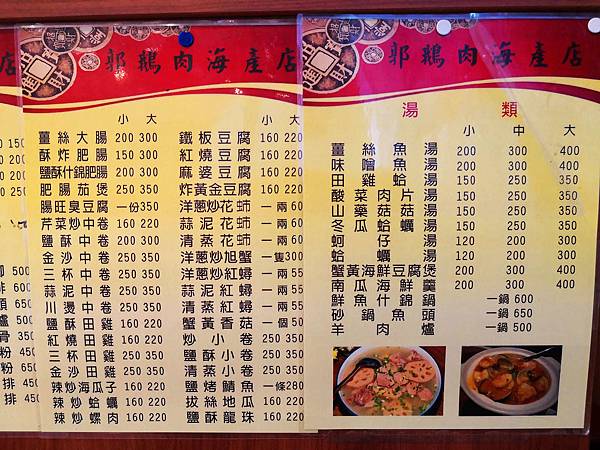 店 郭鵝肉海產店
小 大
薑絲大腸 200 300
酥炸肥腸 150 300
鹽酥什錦肥腸 200 300
肥腸茄煲 250 350
腸旺臭豆腐 一份350
芹菜炒中卷 160 220
鹽酥中卷 200 300
金沙中卷 250 350
三杯中卷 250 350
蒜泥中卷 250 350
川燙中卷 250 350
鹽酥田雞 160 220
紅燒田雞 160 220
三杯田雞 250 350
金沙田雞 250 350
辣炒海瓜子 160 220
辣炒蛤蠣 160 220
辣炒螺肉 160 220
小 大
鐵板豆腐 160 220
紅燒豆腐 160 220
麻婆豆腐 160 220
炸黃金豆腐 160 220
洋蔥炒花蚶 一兩 60
蒜泥花蚶 一兩 60
清蒸花蚶 一兩 60
洋蔥炒旭蟹 一隻300
洋蔥炒紅蟳 一兩 55
蒜泥紅蟳 一兩 55
清蒸紅蟳 一兩 55
蟹黃香菇 一個 50
炒小卷 250 350
鹽酥小卷 250 350
清蒸小卷 250 350
鹽烤鯖魚 一條280
拔絲地瓜 160 220
鹽酥龍珠 160 220
郭鵝肉海產店
湯類
小 中 大
薑絲魚湯 200 300 400
味噌魚湯 200 300 400
田雞蛤湯 150 250 350
酸菜肉片湯 150 250 350
山藥菇菇湯 150 250 350
冬瓜蛤蠣湯 150 250 350
蚵仔湯 120 200 300
蛤蠣湯 120 200 300
蟹黃海鮮豆腐煲 200 300 400
南瓜海鮮羹 200 300 400
鮮魚什錦鍋 一鍋 600
砂鍋魚頭 一鍋 650
羊肉爐 一鍋 500